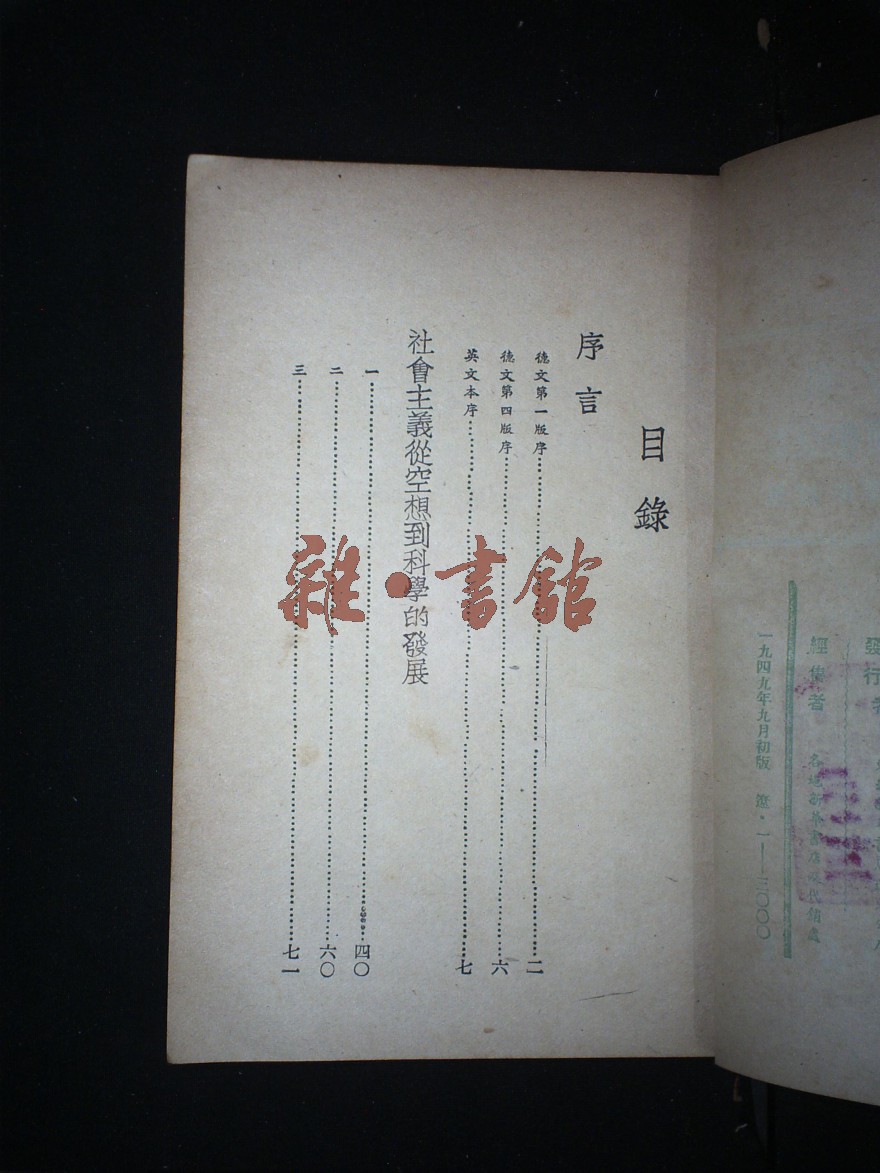 發行者
經售者 各地新華書店或代銷處
一九四九年九月初版 遼·1——三〇〇〇
目錄
序言
德文第一版序……二
德文第四版序……六
英文本序……七
社會主義從空想到科學的發展
一……四〇
二……六〇
三……七一
雜·書館